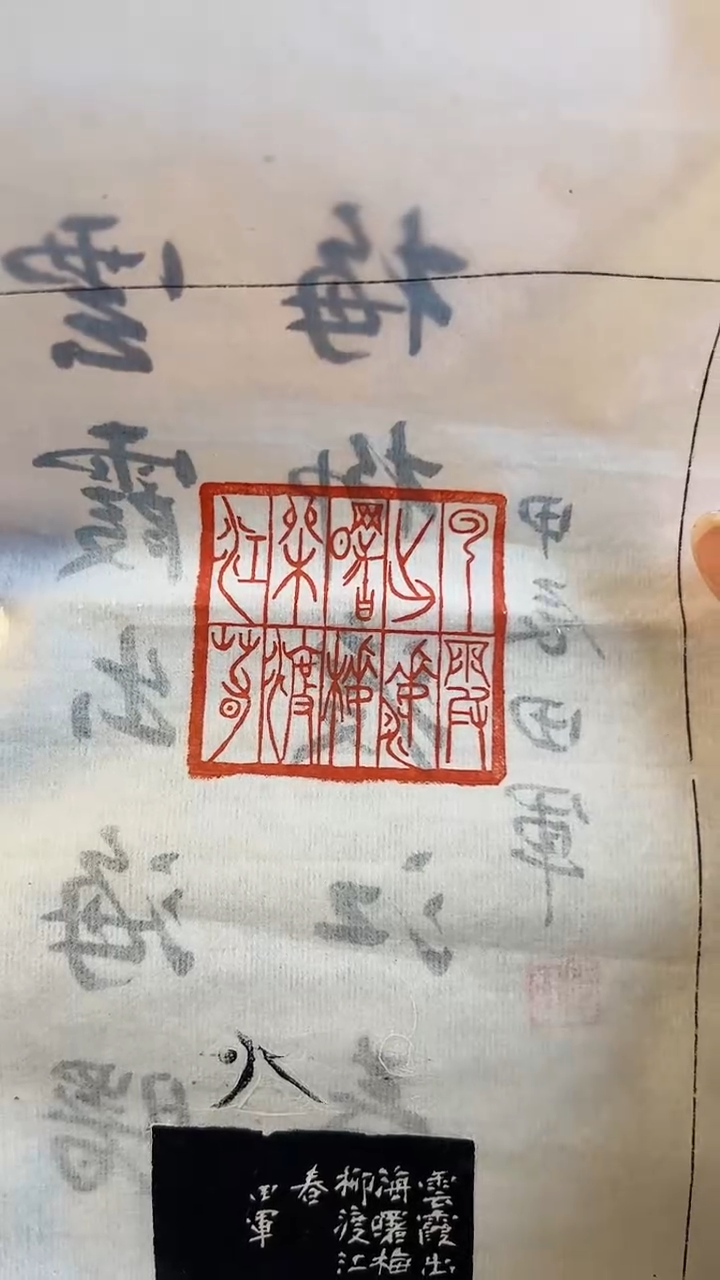 雲霞出海曙
梅柳渡江春
甲辰田軍
云霞
出海
曙梅
柳渡
江春
雲霞出
海曙梅
柳渡江
春
軍